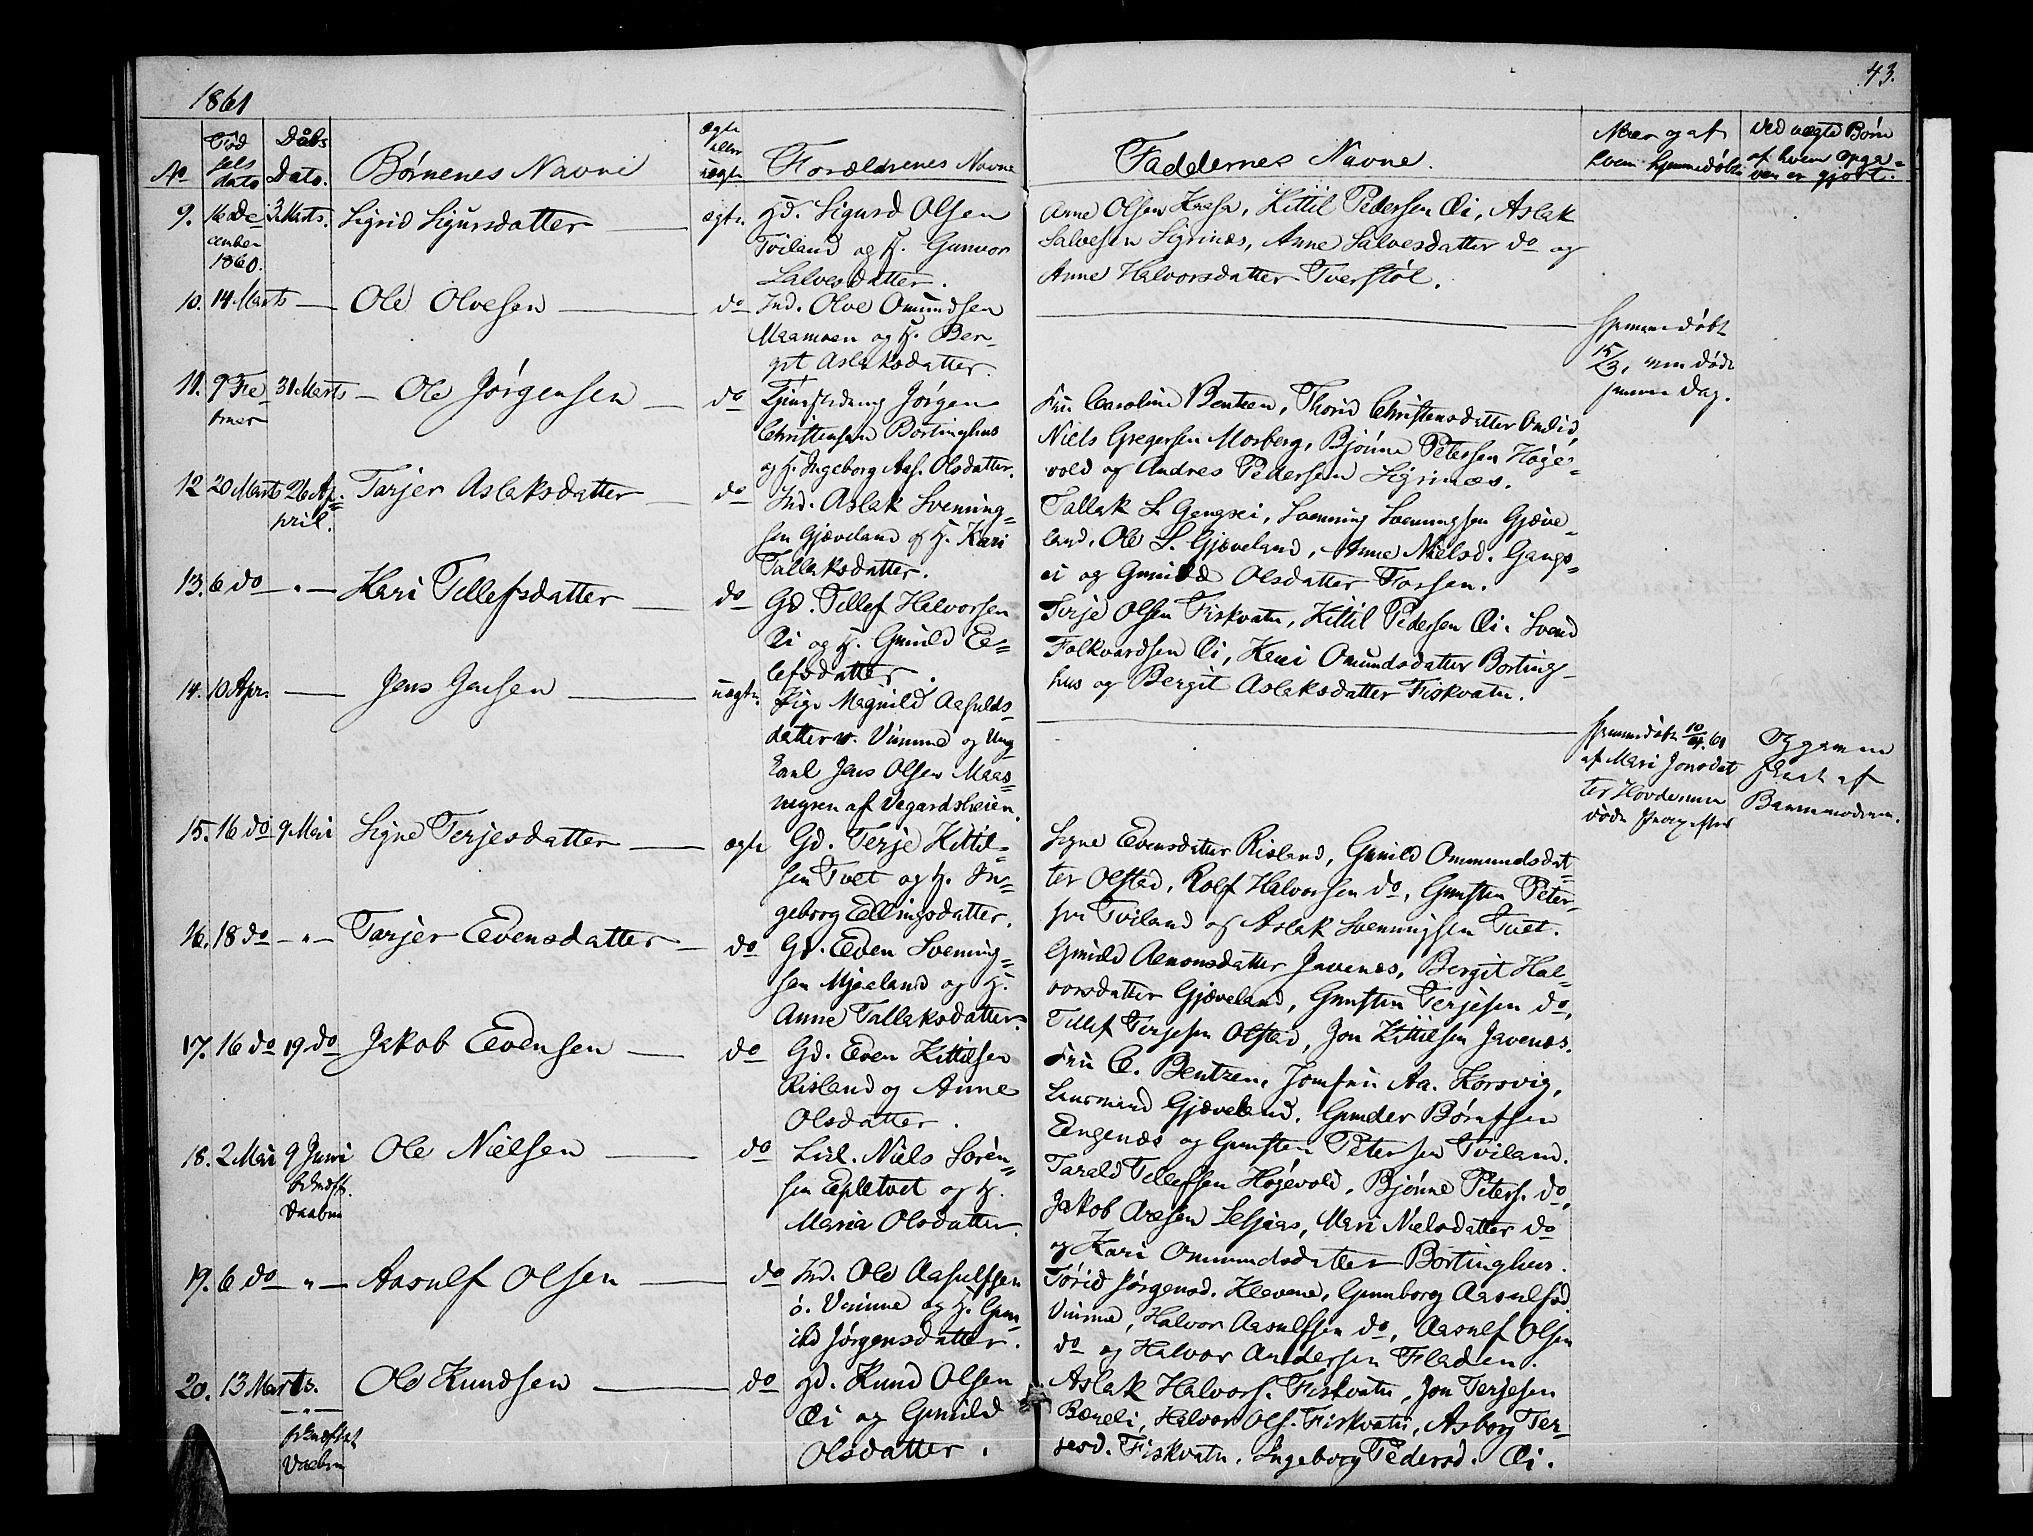 1861
43.
No
Fød
sels
dato
Dåbs
Dato.
Børnenes Navne
Ægte
eller
uægte
Forældrenes Navne
Faddernes Navne.
Naar og af
hvem hjemmedøbt
Ved uægte Børn
af hvem opga-
ven er gjort.
9. 16 De-
cember
1860.
3 Marts.
Sigrid Sigursdatter
ægte.
Gd. Sigurd Olsen
Tviland og H. Gunvor
Salvesdatter.
Anne Olsen, Kittil Pedersen Øi, Aslak
Salvesen Sigrinæs, Anne Salvesdatter do og
Anne Halvorsdatter Tverstøl.
10. 14 Marts
Ole Olvesen
do
Ind. Olve Omundsen
og H. Ber-
git Aslaksdatter.
Hjemmedøbt
15/3, men døde
samme Dag.
11. 9 Fe
bruar
31 Marts
Ole Jørgensen
do
Jørgen
Christensen Bortinghus
og H. Ingeborg Aas. Olsdatter.
Fru Caroline Bentzen, Thorid Christensdatter
Niels Gregersen Mosberg, Bjønne Petersen Høge-
vold og Andres Pedersen Sigrinæs.
12 20 Marts
26 Ap-
pril.
Tarjer Aslaksdatter
do
Ind. Aslak Svenning-
sen Gjæveland og H. Kari
Tallaksdatter.
Tallak S. Gangsei, Svenning Svenningsen Gjæve-
land, Ole S. Gjæveland, Anne Nielsd. Gangs-
ei og Gunild Olsdatter Fossen.
13. 6 do - " -
Kari Tellefsdatter
do
Gd. Tellef Halvorsen
Øi og H. Gunild Ee-
lefsdatter.
Terje Olsen Fiskvatn, Kittil Pedersen Øi, Svend
Folkvardsen Øi, Kari Omundsdatter Borting-
hus og Bergit Aslaksdatter Fiskvatn.
14. 10 Apr.
Jens Jensen
uægte.
Pige Magnild Aasulds-
datter v. Vimme og Ung-
karl Jens Olsen Maas-
af Vegardsheien.
Hjemmedøbt 10/4.61
af Mari Jonsdat
ter Hovdemoen
døde strax efter
Opgaven
skeet af
Barnemoderen.
15. 16 do 9 Mai
Signe Terjesdatter
ægte
Gd. Terje Kittil-
sen Tvet og H. In-
geborg Ellingsdatter.
Signe Evensdatter Risland, Gunild Ommundsdat-
ter Olstad, Rolf Halvorsen do, Gunsten Peter-
sen Tviland og Aslak Svenningsen Tvet.
16. 18 do - " -
Tarjer Eevensdatter
do
Gd. Eeven Svenning-
sen Mjaaland og H.
Anne Tallaksdatter.
Gunild Aanonsdatter Javenæs, Bergit Hal-
vorsdatter Gjæveland, Gunsten Terjesen do,
Tellef Terjesen Olstad, Jon Kittilsen Javenæs.
17. 16 do 19 do
Jakob Eevensen
do
Gd. Eeven Kittilsen
Risland og Anne
Olsdatter.
Fru C. Bentzen, Jomfru Aa. Korsvig,
Lensmand Gjæveland, Gunder Børufsen
Eengenæs og Gunsten Petersen Tviland.
18. 2 Mai 9 Juni
bekræft.
Daaben
Ole Nielsen
do
Niels Søren-
sen Epletvet og H.
Maria Olsdatter.
Tarald Tellefsen Høgevold, Bjønne Peters. do,
Jakob Aresen Seljaas, Mari Nielsdatter do
og Kari Ommundsdatter Bortinghus.
19. 6 do - " -
Aasulf Olsen
do
Ind. Ole Aasulfsen
ø. Vimme og H. Gun-
ild Jørgensdatter.
Torid Jørgensd. Klevene, Gunborg Aasulfsd.
Vimme, Halvor Aasulfsen do, Aasulf Olsen
do og Halvor Andersen Fladen.
20. 13 Marts.
- " -
bekræftet
Daaben
Ole Knudsen
do
Gd. Knud Olsen
Øi og Gunild
Olsdatter.
Aslak Halvors. Fiskvatn, Jon Terjesen
Bæreli, Halvor Ols. Fiskvatn, Asborg Ter-
jesd. Fiskvatn, Ingeborg Pedersd. Øi.